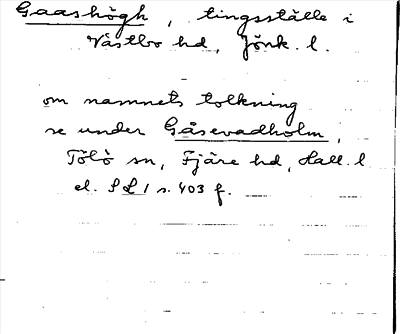 Gaashögh, tingsställe i
Västbo hd, Jönk. l.
om namnets tolkning
se under Gåsevadholm,
Tölö sn, Fjäre hd, Hall. l
el. SL 1 s. 403 f.